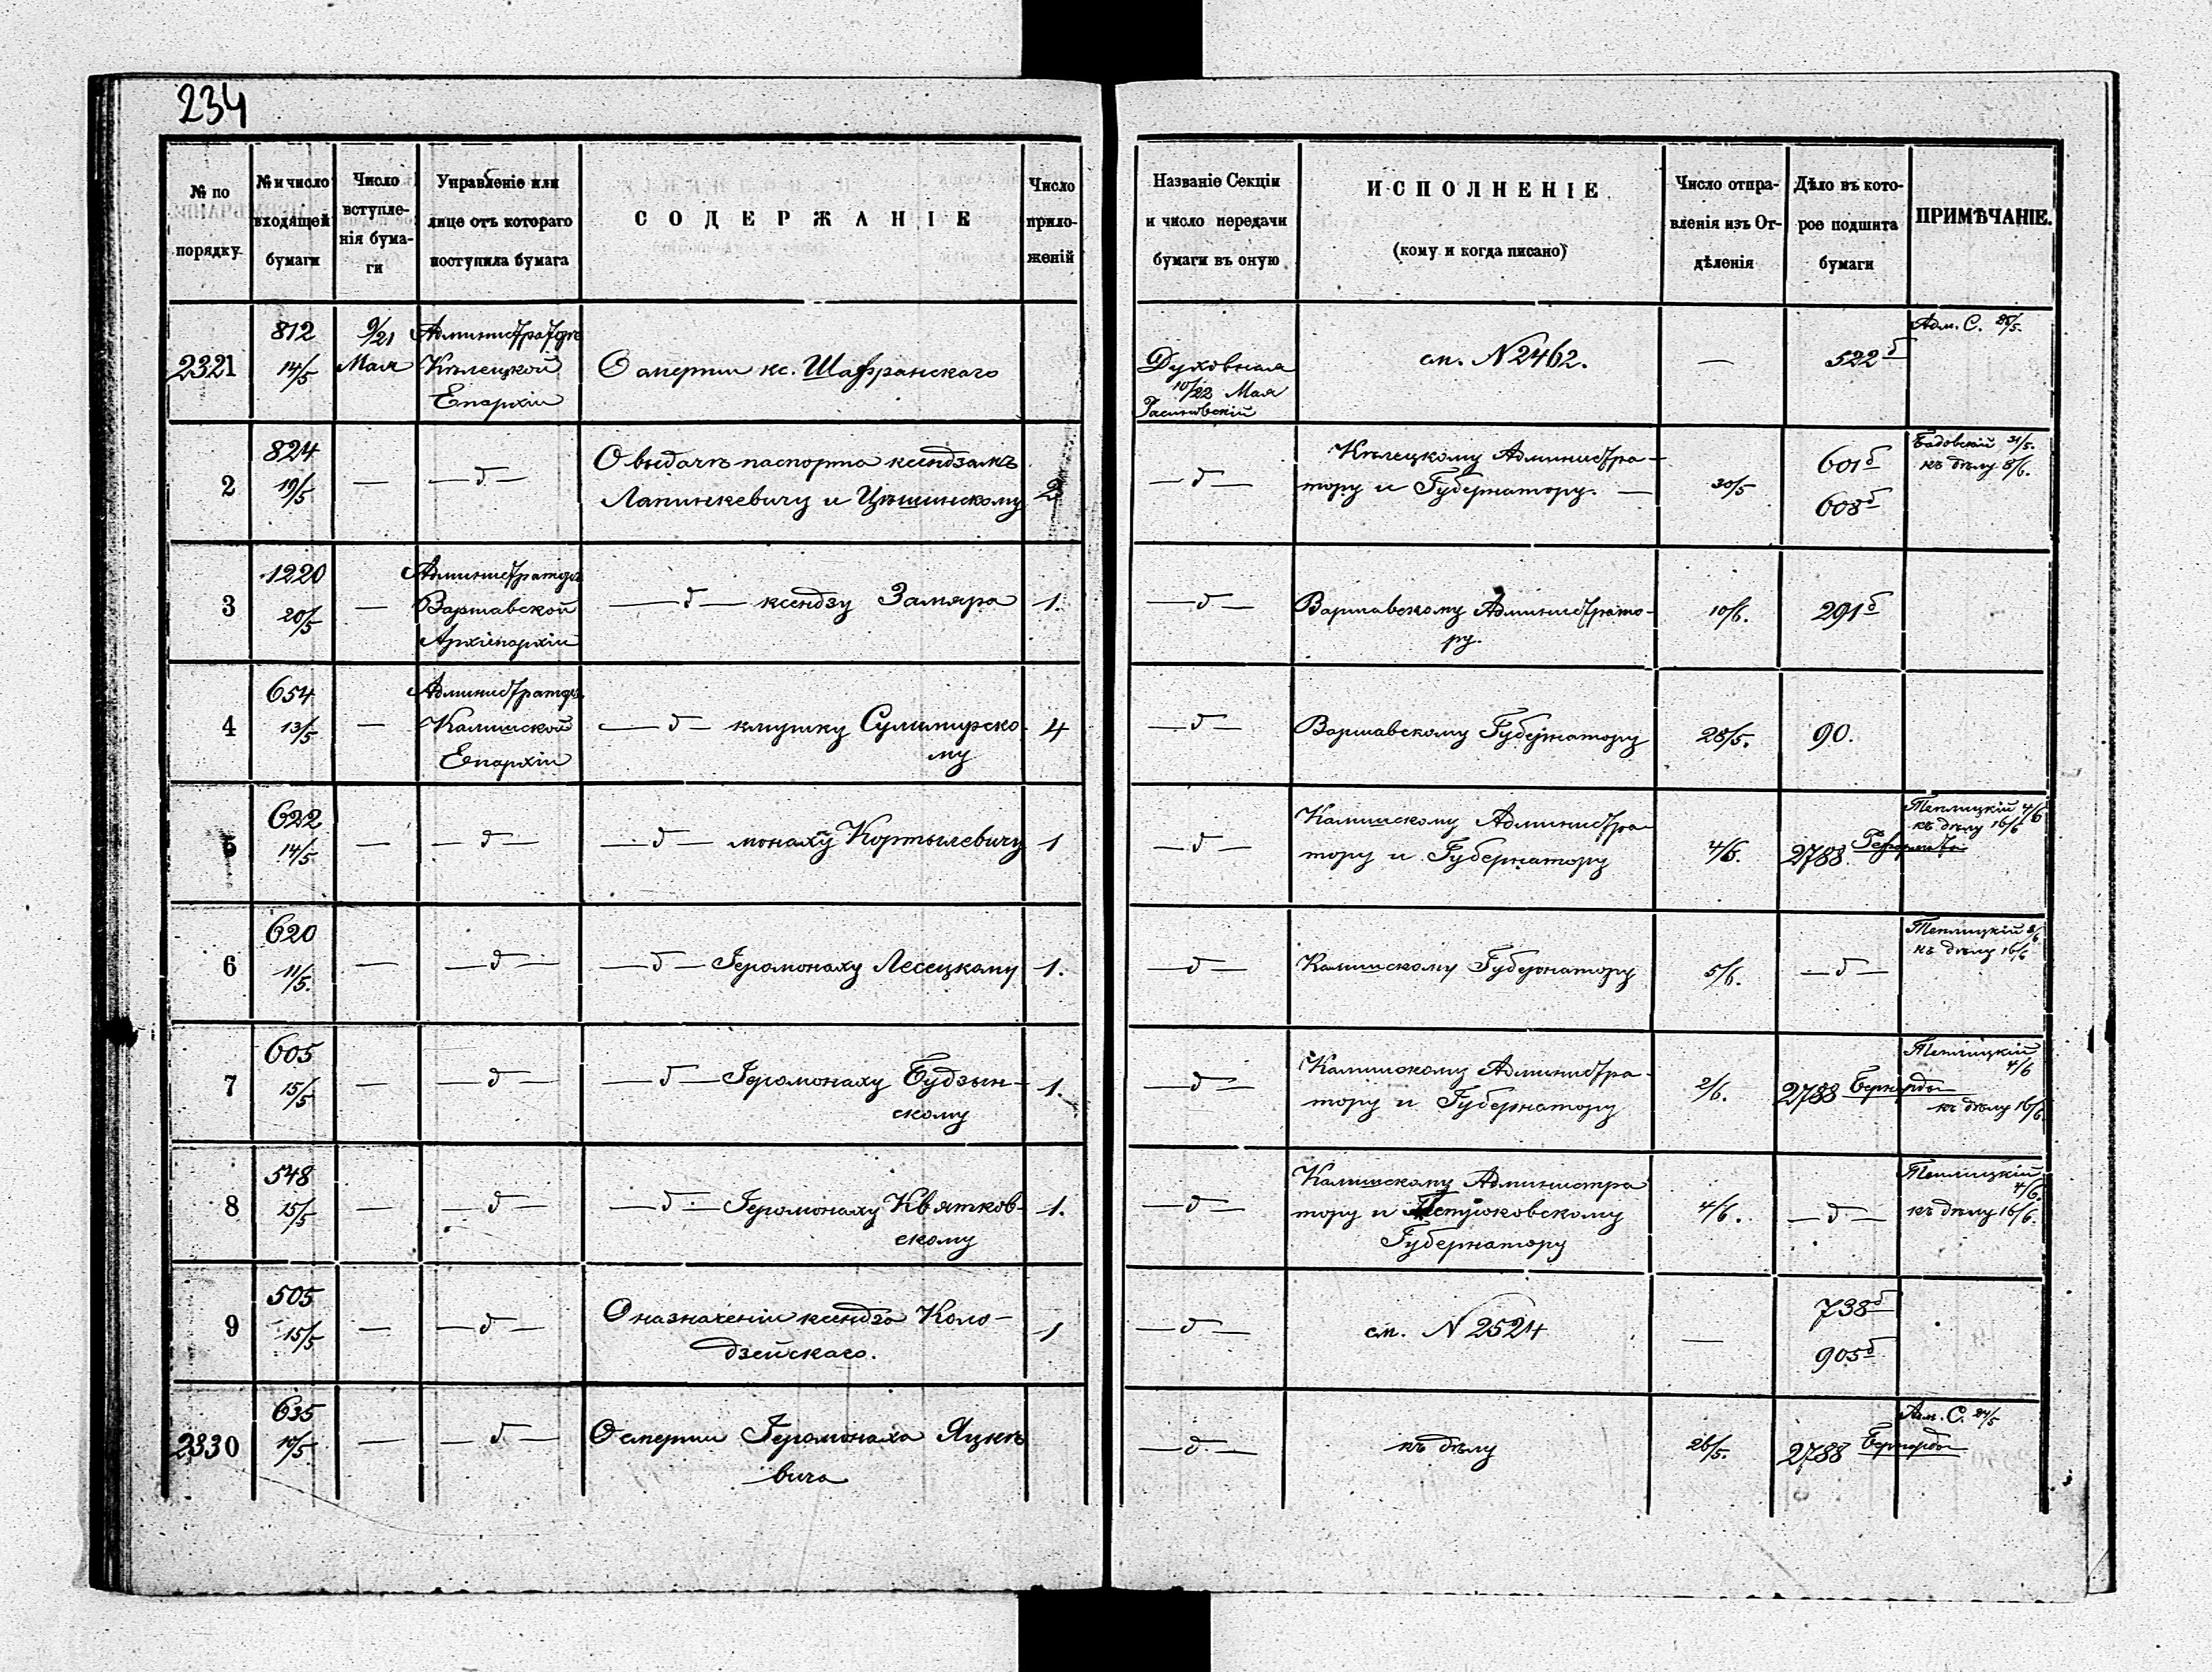 234
№ по порядку
№ и число входящей бумаги
Число вступле-нія бума-ги
Управленіе или лице отъ котораго поступила бумага
СОДЕРЖАНІЕ
Число прило-женій
Названіе Секціи и число передачи бумаги въ оную
ИСПОЛНЕНІЕ (кому и когда писано)
Число отпра-вленія изъ От-дѣленія
Дѣло въ кото-рое подшита бумаги
ПРИМѢЧАНІЕ.
2321
812
14/5
9/21 Мая
Администраторъ
Кѣлецкой
Епархіи
О смерти кс. Шафранскаго
Духовная
10/22 Мая
см. N 2462.
—
522 б
Адм. С. 25/5.
2
824
19/5
—
— д —
О выдачѣ паспорта ксендзамъ
Лапинкевичу и Цѣшинскому
2
— д —
Кѣлецкому Администра-
тору и Губернатору. —
30/5
601 б
608 б
Бадовскій 31/5.
къ дѣлу 8/6.
3
1220
20/5
—
Администраторъ
Варшавской
Архіепархіи
— д — ксендзу Замяра
1.
— д —
Варшавскому Администрато-
ру.
10/6.
291 б
4
654
13/5
—
Администраторъ
Калишской
Епархіи
— д — клирику Сулимирско-
му
4
— д —
Варшавскому Губернатору
28/5.
90.
5
622
14/5
—
— д —
— д — монаху Кортылевичу
1
— д —
Калишскому Администра-
тору и Губернатору
4/6.
2788 Реформаты
Теплицкій 4/6
къ дѣлу 16/6
6
620
11/5.
—
— д —
— д — Іеромонаху Лесецкому
1.
— д —
Калишскому Губернатору
5/6.
— д —
Теплицкій 8/6
къ дѣлу 16/6
7
605
15/5
—
— д —
— д — Іеромонаху Будзын-
скому
1.
— д —
Калишскому Администра-
тору и Губернатору
2/6.
2788 Бернарды
Теплицкій
4/6
къ дѣлу 16/6
8
548
15/5
—
— д —
— д — Іеромонаху Квятков-
скому
1.
— д —
Калишскому Администра
тору и Петроковскому
Губернатору
4/6.
— д —
Теплицкій
4/6.
къ дѣлу 16/6.
9
505
15/5
—
— д —
О назначеніи ксендза Коло-
дзейскаго.
1
— д —
см. N 2524
—
738 б
905 б
2330
635
14/5
—
— д —
О смерти Іеромонаха Яцке
вича
— д —
къ дѣлу
26/5.
2788 Бернарды
Адм. С. 24/5